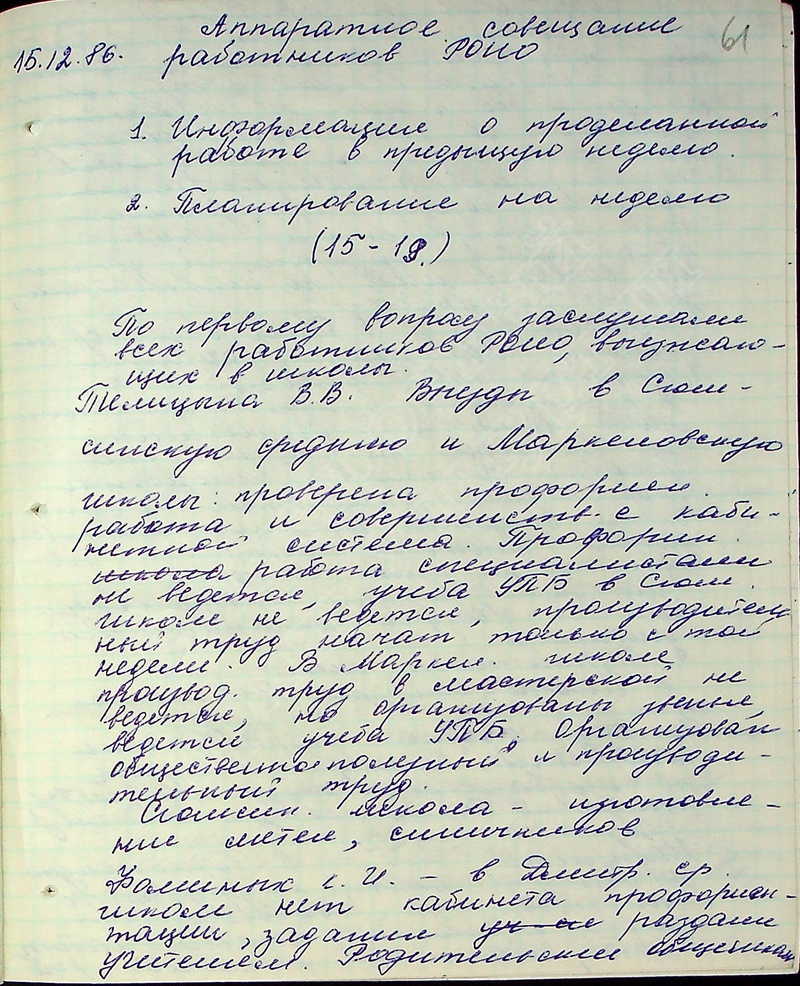 Аппаратное совещание
61
15.12.86. работников РОНО
1. Информация о проделанной
работе в предыдущую неделю.
2. Планирование на неделю
(15-19.)
По первому вопросу заслушали
всех работников РОНО, выезжаю-
щих в школы.
Телицына В.В. Выезды в Сюм-
синскую среднюю и Маркеловскую
школы: проверена профориен.
работа и совершенств. с каби-
нетной система. Профориен.
школа работа специалистами
не ведется, учеба УПБ в Сюм.
школе не ведется, производитель
ный труд начат только с той
недели. В Маркел. школе
производ. труд в мастерской не
ведется, но организованы звенья,
ведется учеба УПБ. Организован
общественно полезный и производи-
тельный труд.
Сюмсин. школа - изготовле-
ние метел, синичников
Фоминых г. И. - в Дмитр. ср.
школе нет кабинета профориен-
тации, задания уч-ся раздали
учителем. Родительский